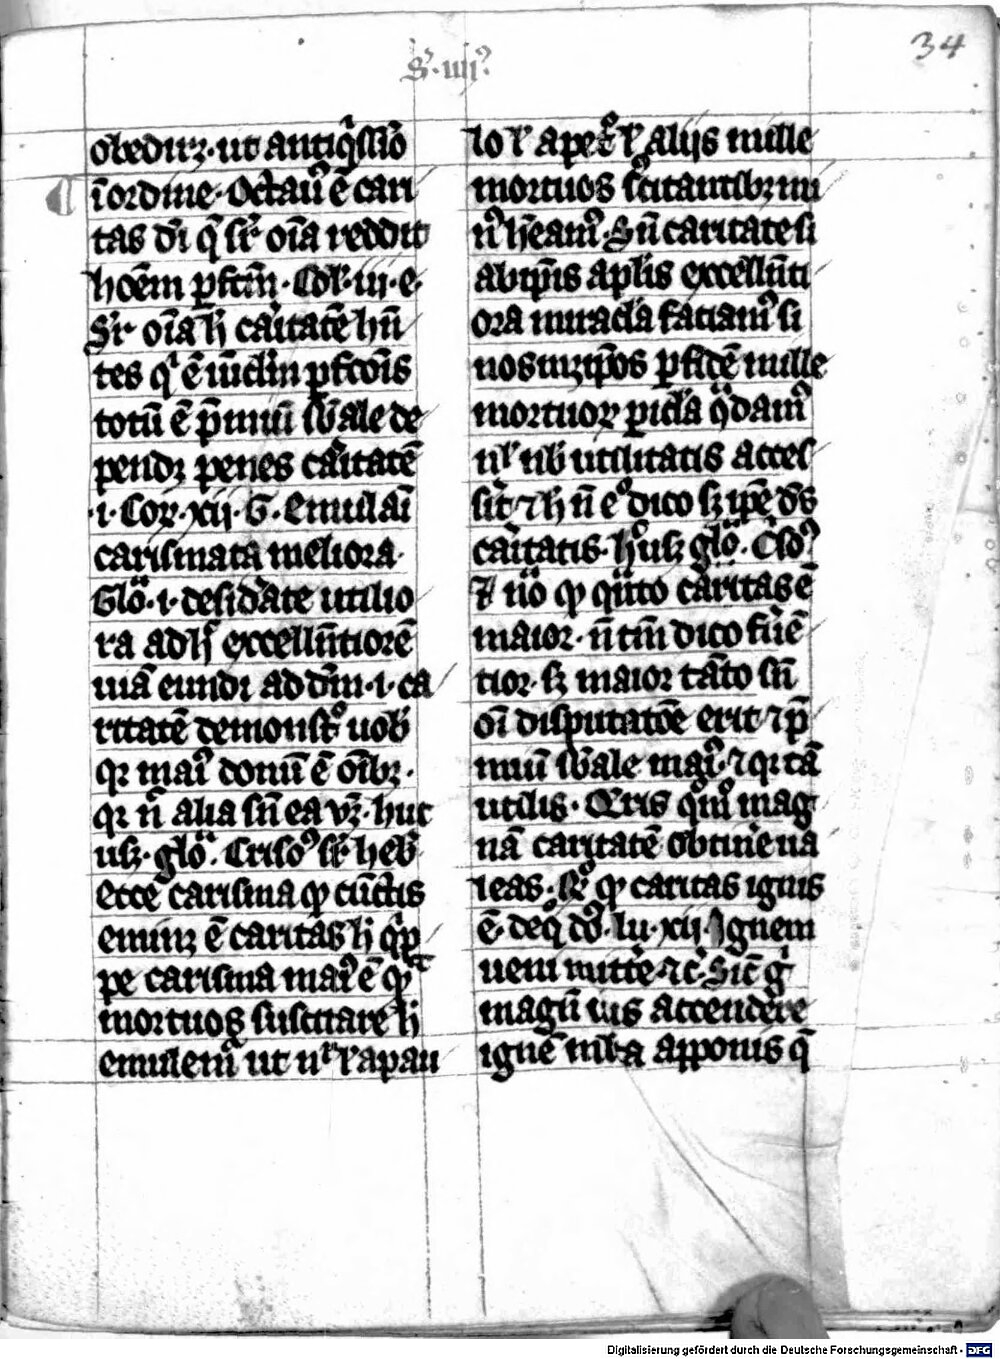 34
S̄·iiij⁹
obediūꝫ·ut antiq̄ssīo
ī ordine· Octauū ē cari
tas dei q̄ sr̄ oīa reddit
hoēm ꝑfcm̄· Col·iij·e·
Sr̄ oīa h̄ caritatē hn̄
tes qd ē uīclm̄ ꝑfcōīs
totū ē p̄miū sb̄ale de
pendꝫ penes caritatē
·i·Cor·xij·G· Emulāī
carismata meliora·
Glo·i·desiderate utilio
ra adhuc excellētiorē
uiā eundi ad dm̄·i·ca
ritatē demonstro uob̄
qꝛ maiꝰ donū ē oībꝫ·
qꝛ n̄ alia sn̄ ea vꝫ· huc
usqꝫ· glo· Crisoꝰ sr̄ heb̄
ecce carisma qd cūctis
eminꝫ ē caritas h̄ qꝑ
pe carisma maiꝰ ē qm̄
mortuos suscitare h̄
emulemꝰ ut nr̄ l apau
lo l̄ a petro l̄ alijs mille
mortuos scitantibꝫ mi
nꝰ heamꝰ· Sn̄ caritate si
ab ip̄is ap̄lis excellēti
ora miracla faciamꝰ si
nosmꝫ ip̄os ꝑ fidē mille
mortuoꝝ picla q̄damꝰ
nl̄ nb̄ utilitatis acces
sit ⁊ h n̄ ego dico sꝫ ip̄e ds̄
caritatis· hꝰusqꝫ glo· Crisoꝰ
⁊ iō qd qn̄to caritas ē
maior· n̄ tm̄ dico feruē
tior· sꝫ maior tāto sn̄
oī disputatōe erit ⁊ p̄
miū sb̄ale maiꝰ· ⁊ qꝛ tā
utilis· Q̄ris quō mag
nā caritatē obtine ua
leas· Rn̄ qd caritas ignis
ē· de qo dō·lu·xij· Ignem
ueni mitte ⁊c̄· Sicut gͥ
magn̄ uis accendere
ignē mlta apponis q̄
Digitalisierung gefördert durch die Deutsche Forschungsgemeinschaft - DFG